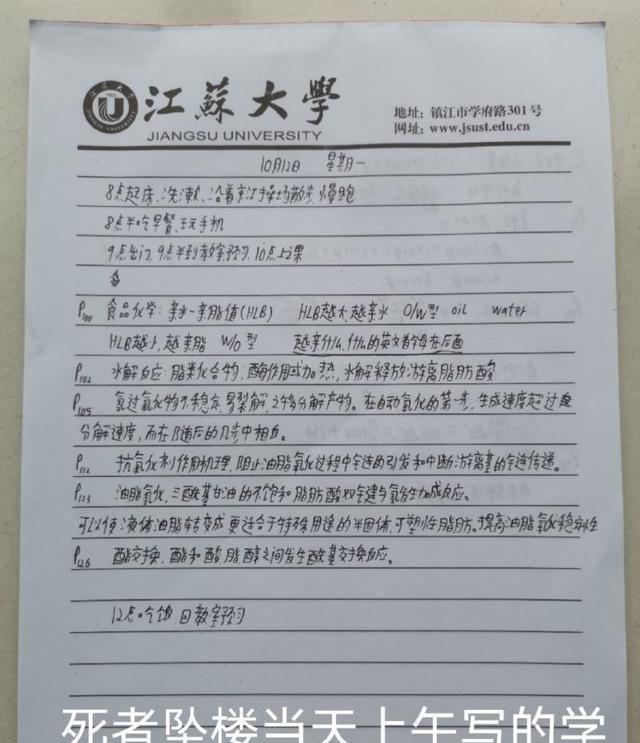 江蘇大學
JIANGSU UNIVERSITY
地址: 镇江市学府路301号
网址: www.jsust.edu.cn
10月12日 星期一
8点起床、洗漱、沿着京江操场散步、慢跑
8点半吃早餐、玩手机
9点出门, 9点半到教室预习, 10点上课
P100 食品化学: 亲水-亲脂值(HLB) HLB越大,越亲水 O/W型 oil water
HLB越小,越亲脂 W/O型 越亲什么,什么的英文首字母在后面
P102 水解反应: 脂类化合物, 酶作用或加热, 水解释放游离脂肪酸
P105 氢过氧化物不稳定, 易裂解, 分解产物。在自动氧化的第一步, 生成速度超过
分解速度, 而在随后的几步中相反。
P112 抗氧化剂作用机理, 阻止油脂氧化过程中链的引发和中断游离基的链传递。
P123 油脂氢化, 三酰基甘油的不饱和脂肪酸双键与氢发生加成反应。
可以使液体油脂转变成更适合于特殊用途的半固体, 可塑性脂肪。提高油脂氧化稳定性
P126 酯交换, 酯和酸, 脂, 醇之间发生酰基交换反应。
12点吃饭 回教室预习
死者坠楼当天上午写的学